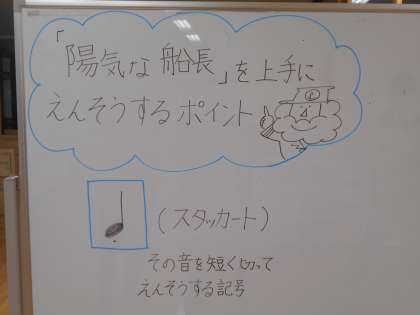 「陽気な船長」を上手に
えんそうするポイント
(スタッカート)
その音を短く切って
えんそうする記号